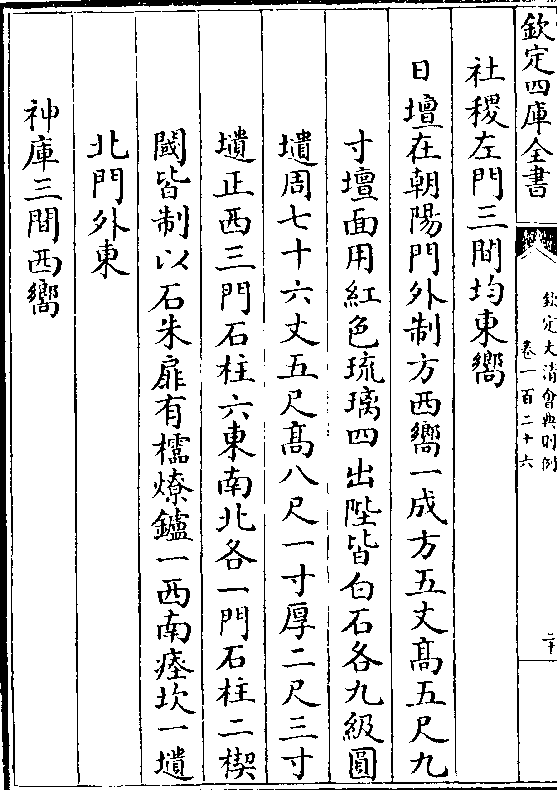 欽定四庫全書
欽定大清會典則例
卷一百二十六
二十
社稷左門三間均東嚮
日壇在朝陽門外制方西嚮一成方五丈髙五尺九
寸壇面用紅色琉璃四出陛皆白石各九級圓
壝周七十六丈五尺髙八尺一寸厚二尺三寸
壝正西三門石柱六東南北各一門石柱二楔
閾皆制以石朱扉有櫺燎鑪一西南瘞坎一壝
北門外東
神庫三間西嚮